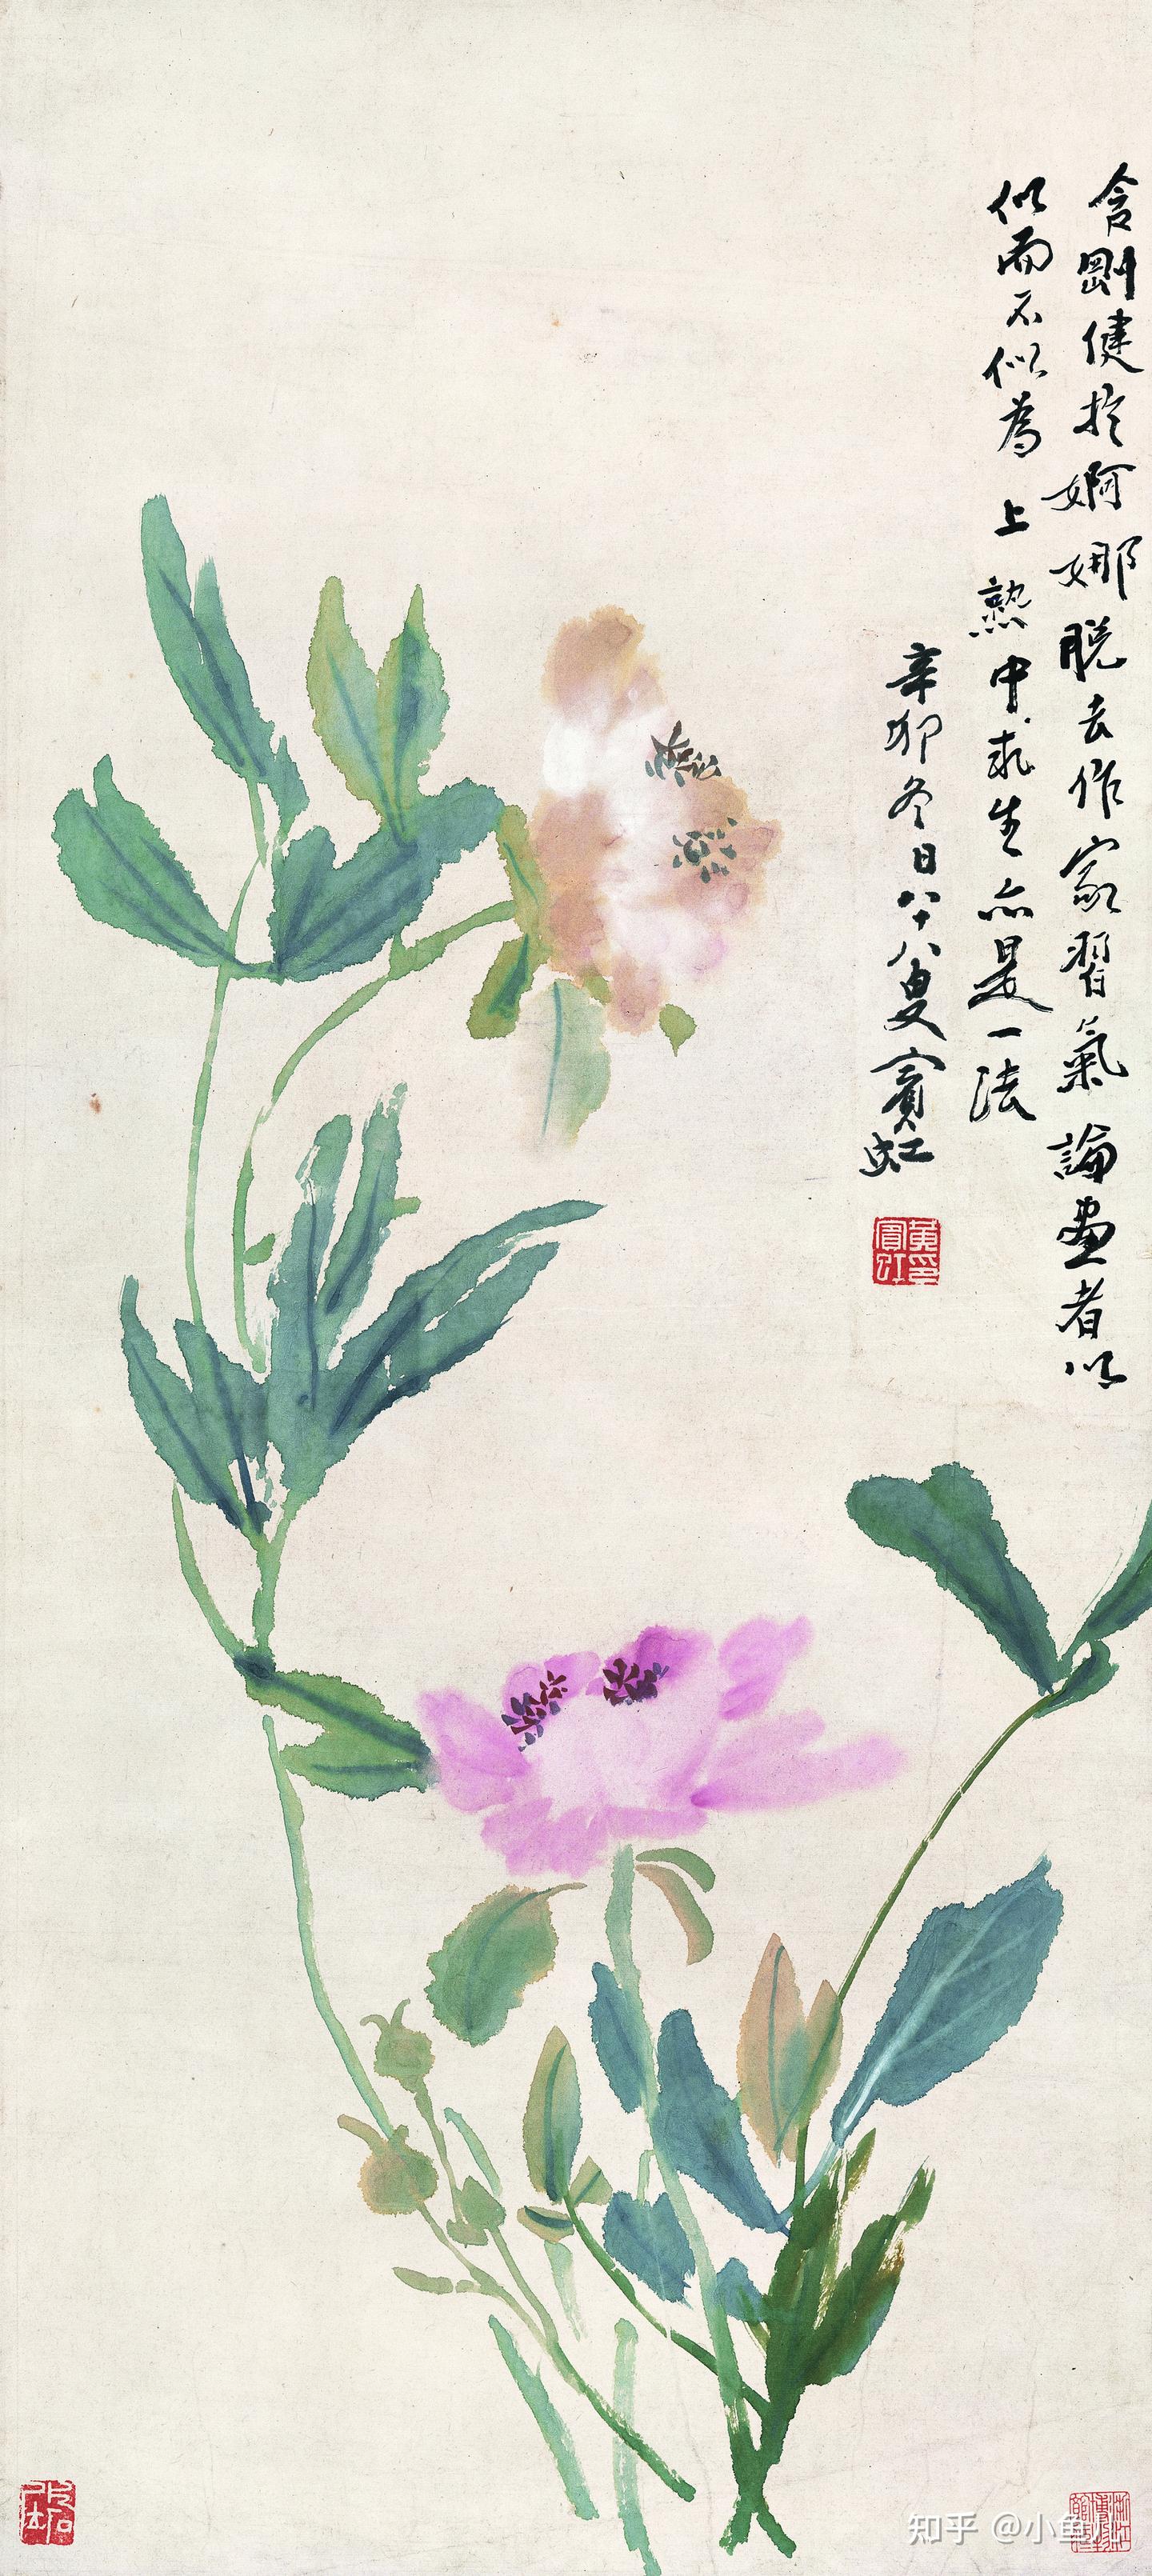 含剛健於婀娜脫去作家習氣論畫者以
似而不似為上熟中求生亦是一法
辛卯冬日八十八叟賓虹
黃賓虹印
知乎 @小鱼